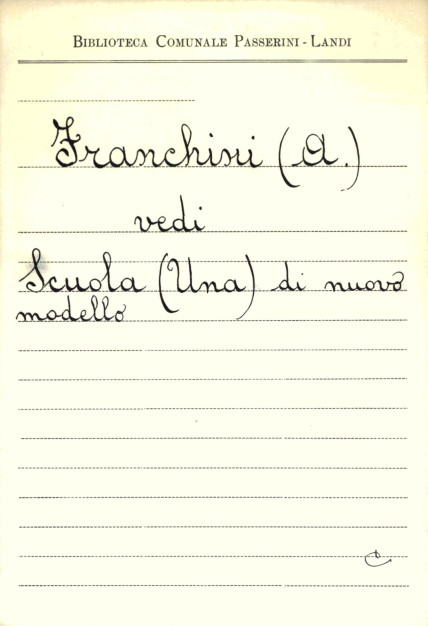 Biblioteca Comunale Passerini - Landi
Franchini (A.)
vedi
Scuola (Una) di nuovo
modello